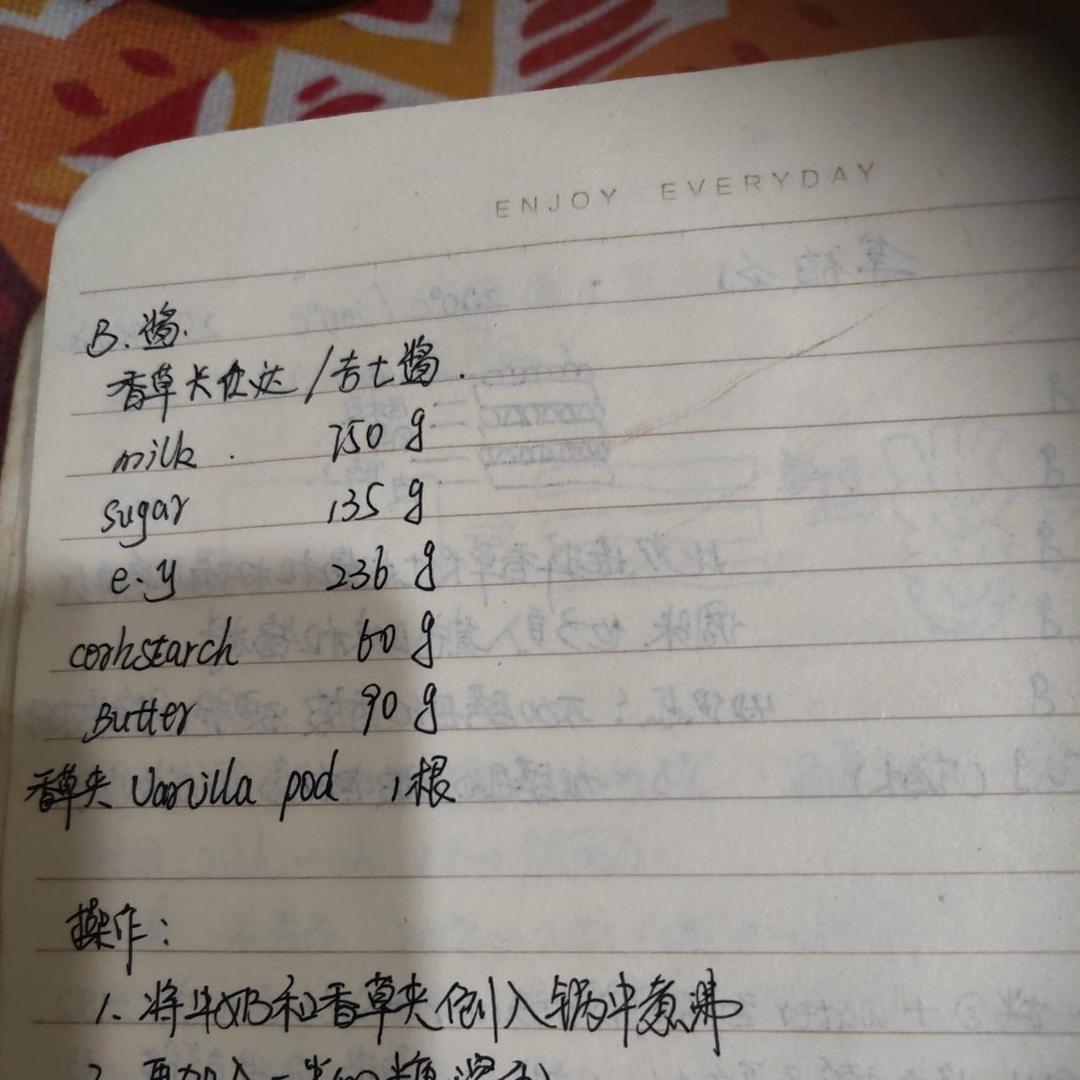 ENJOY EVERYDAY
B. 酱.
香草卡仕达/吉士酱.
milk. 750 g
sugar 135 g
e.y 236 g
cornstarch 60 g
Butter 90 g
香草夹 Vanilla pod 1根
操作:
1. 将牛奶和香草夹倒入锅中煮沸
2. 再加入一半的糖